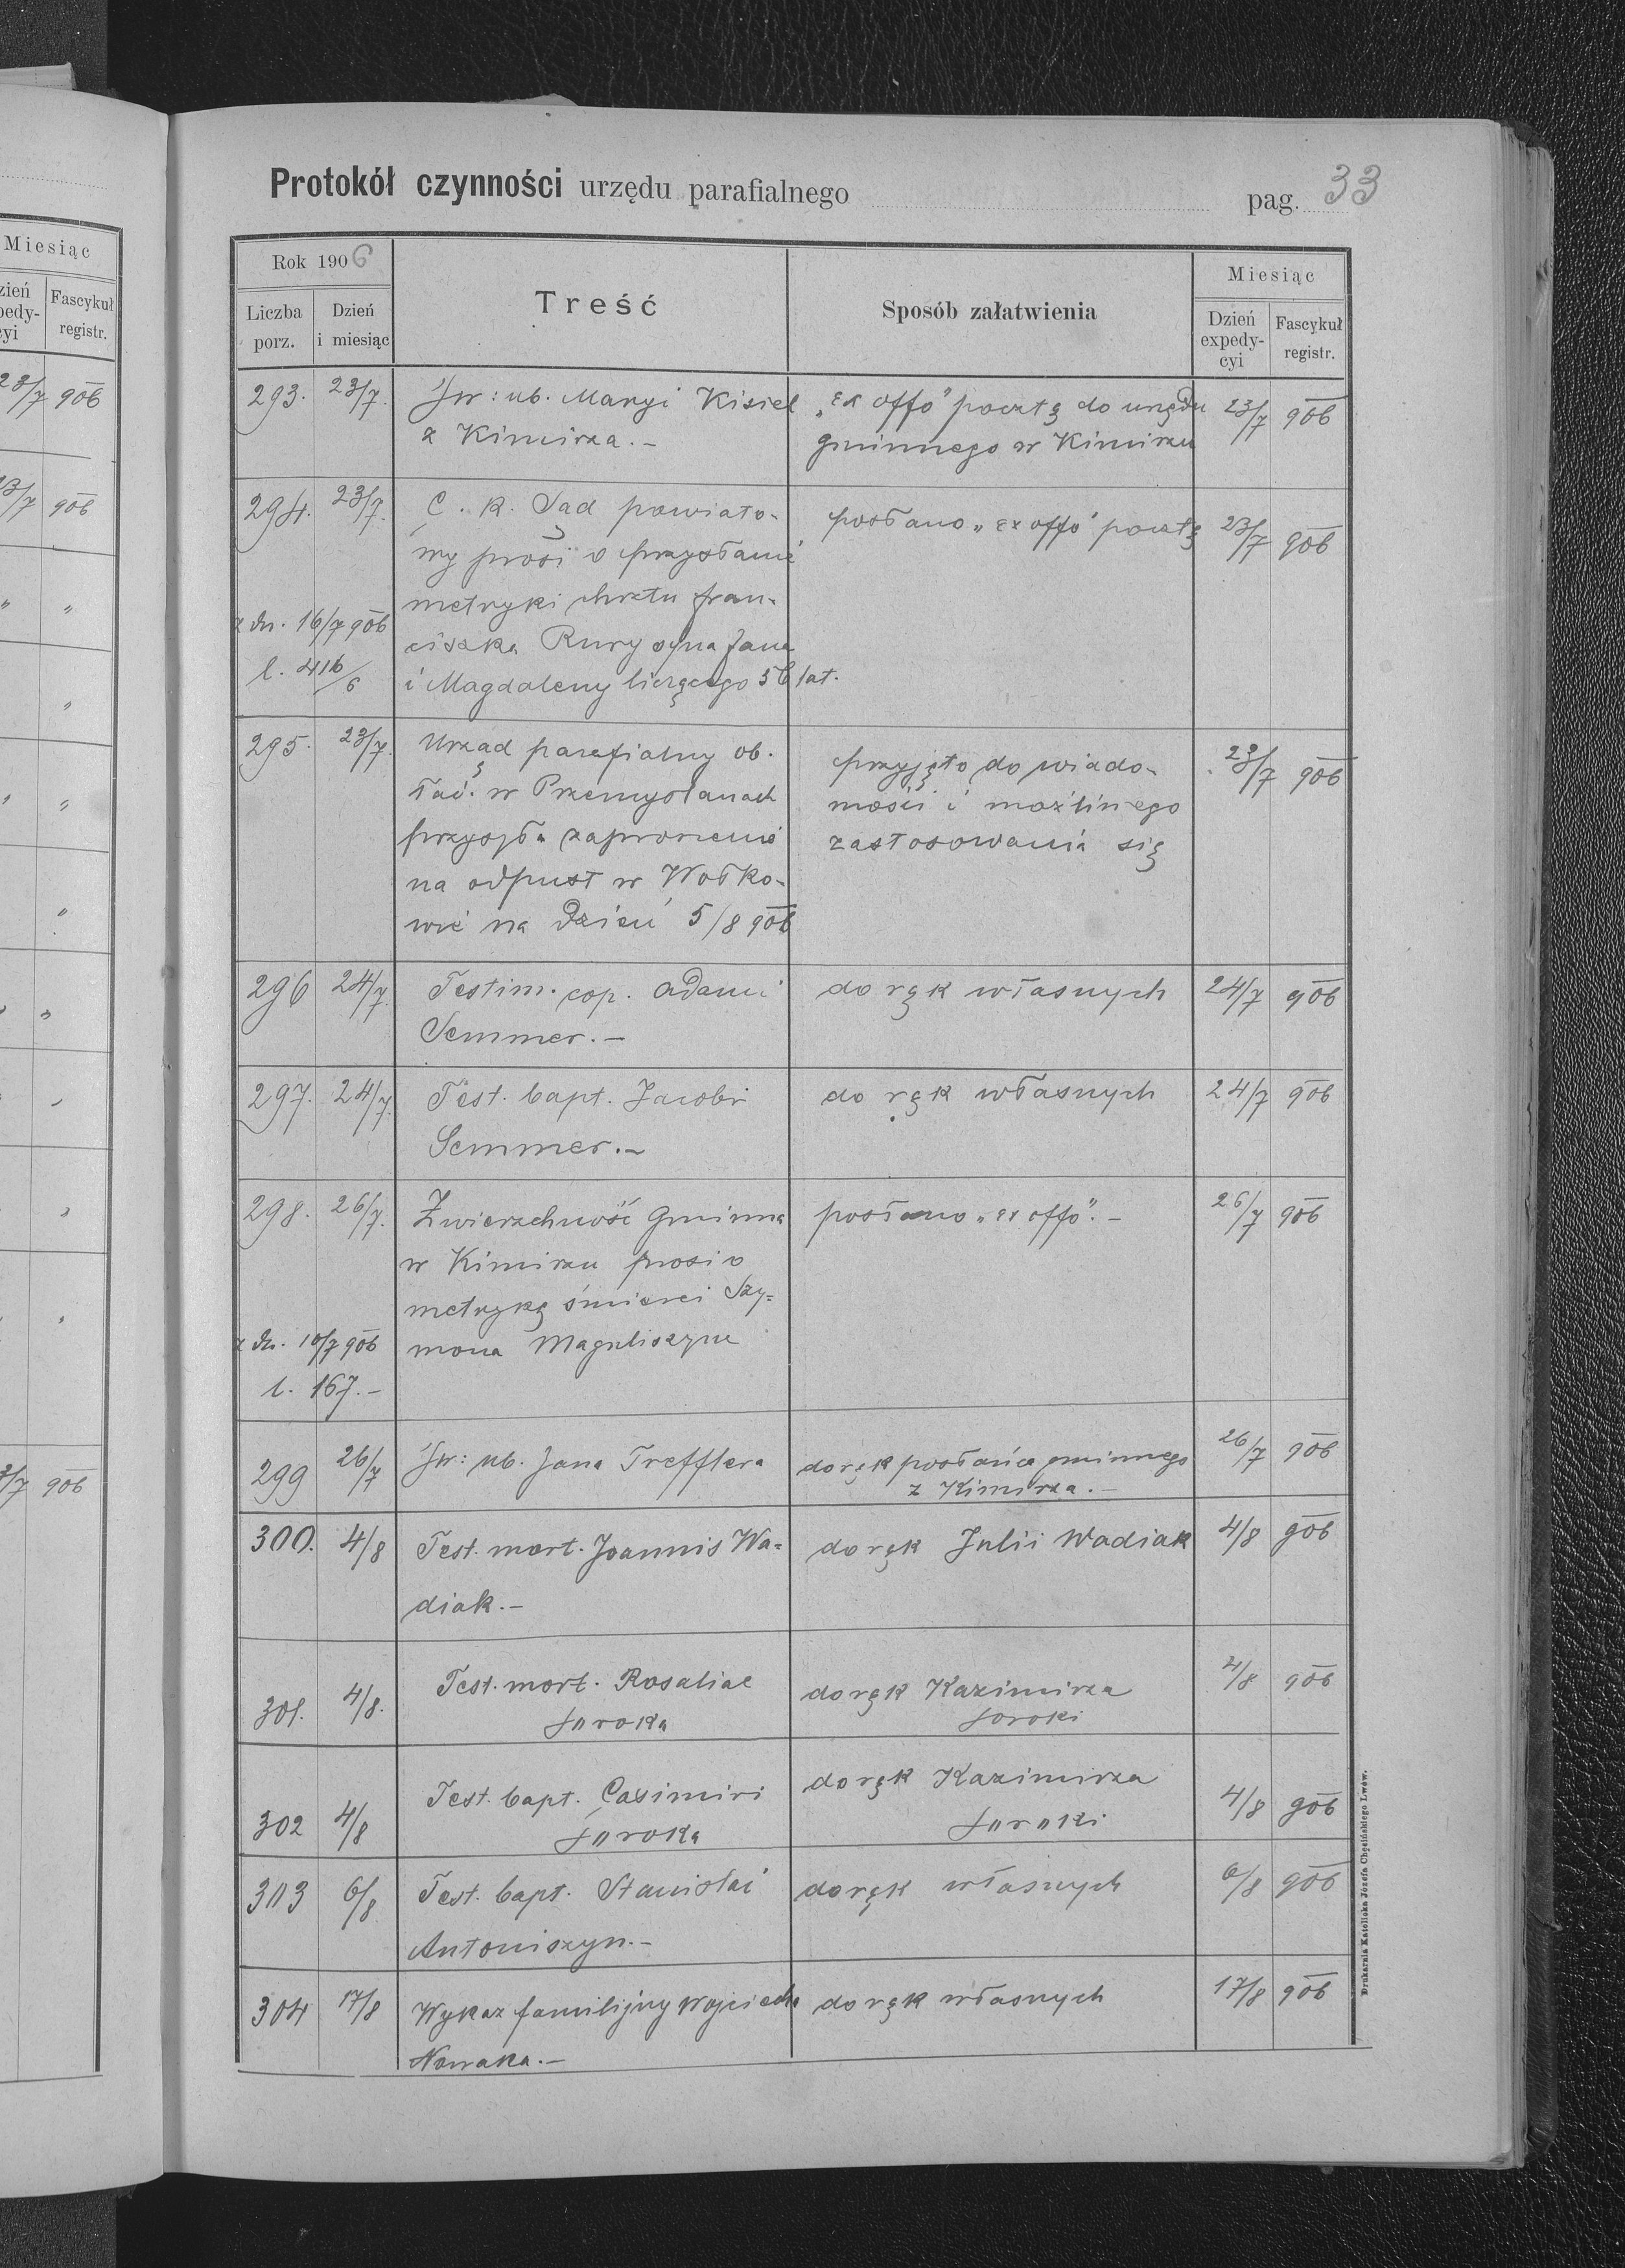 Protokół czynności urzędu parafialnego pag. 33
Rok 1906
Liczba porz.
Dzień i miesiąc
Treść
Sposób załatwienia
Miesiąc
Dzień expedy-cyi
Fascykuł registr.
293. 23/7. Św: ub. Maryi Kisiel „ex offo” pocztą do urzędu 23/7 906
z Kimirza.- gminnego w Kimirzu
294. 23/7. C. k. Sąd powiato- posłano „ex offo” pocztą 23/7 906
wy prosi o przysłanie
metryki chrztu Fran-
z dn. 16/7 906 ciszka Rury syna Jana
l. 416/6 i Magdaleny liczącego 56 lat.
295. 23/7. Urząd parafialny ob. przyjęto do wiado- 23/7 906
łać. w Przemyślanach mości i możliwego
przysyła zaproszenie zastosowania się
na odpust w Wołko-
wie na dzień 5/8 906
296 24/7. Testim. cop. Adami do rąk własnych 24/7 906
Semmer.-
297. 24/7. Test. bapt. Jacobi do rąk własnych 24/7 906
Semmer.-
298. 26/7. Zwierzchność Gminna posłano „ex offo”.- 26/7 906
w Kimirzu prosi o
metrykę śmierci Szy=
z dn. 10/7 906 mona Maguliszyna
l. 167.-
299 26/7 Św: ub. Jana Trefflera do rąk posłańca gminnego 26/7 906
z Kimirza.-
300. 4/8 Test. mort. Joannis Wa= do rąk Julii Wadiak 4/8 906
diak.-
301. 4/8. Test. mort. Rosaliae do rąk Kazimirza 4/8 906
Soroka Soroki
302 4/8 Test. bapt. Casimiri do rąk Kazimirza 4/8 906
Soroka Soroki
303 6/8 Test. bapt. Stanislai do rąk własnych 6/8 906
Antoniszyn.-
304 17/8 Wykaz familijny Wojciecha do rąk własnych 17/8 906
Nowaka.-
Drukarnia Katolicka Józefa Chęcińskiego Lwów.
Miesiąc
Fascykuł registr.
23/7 906
906
906